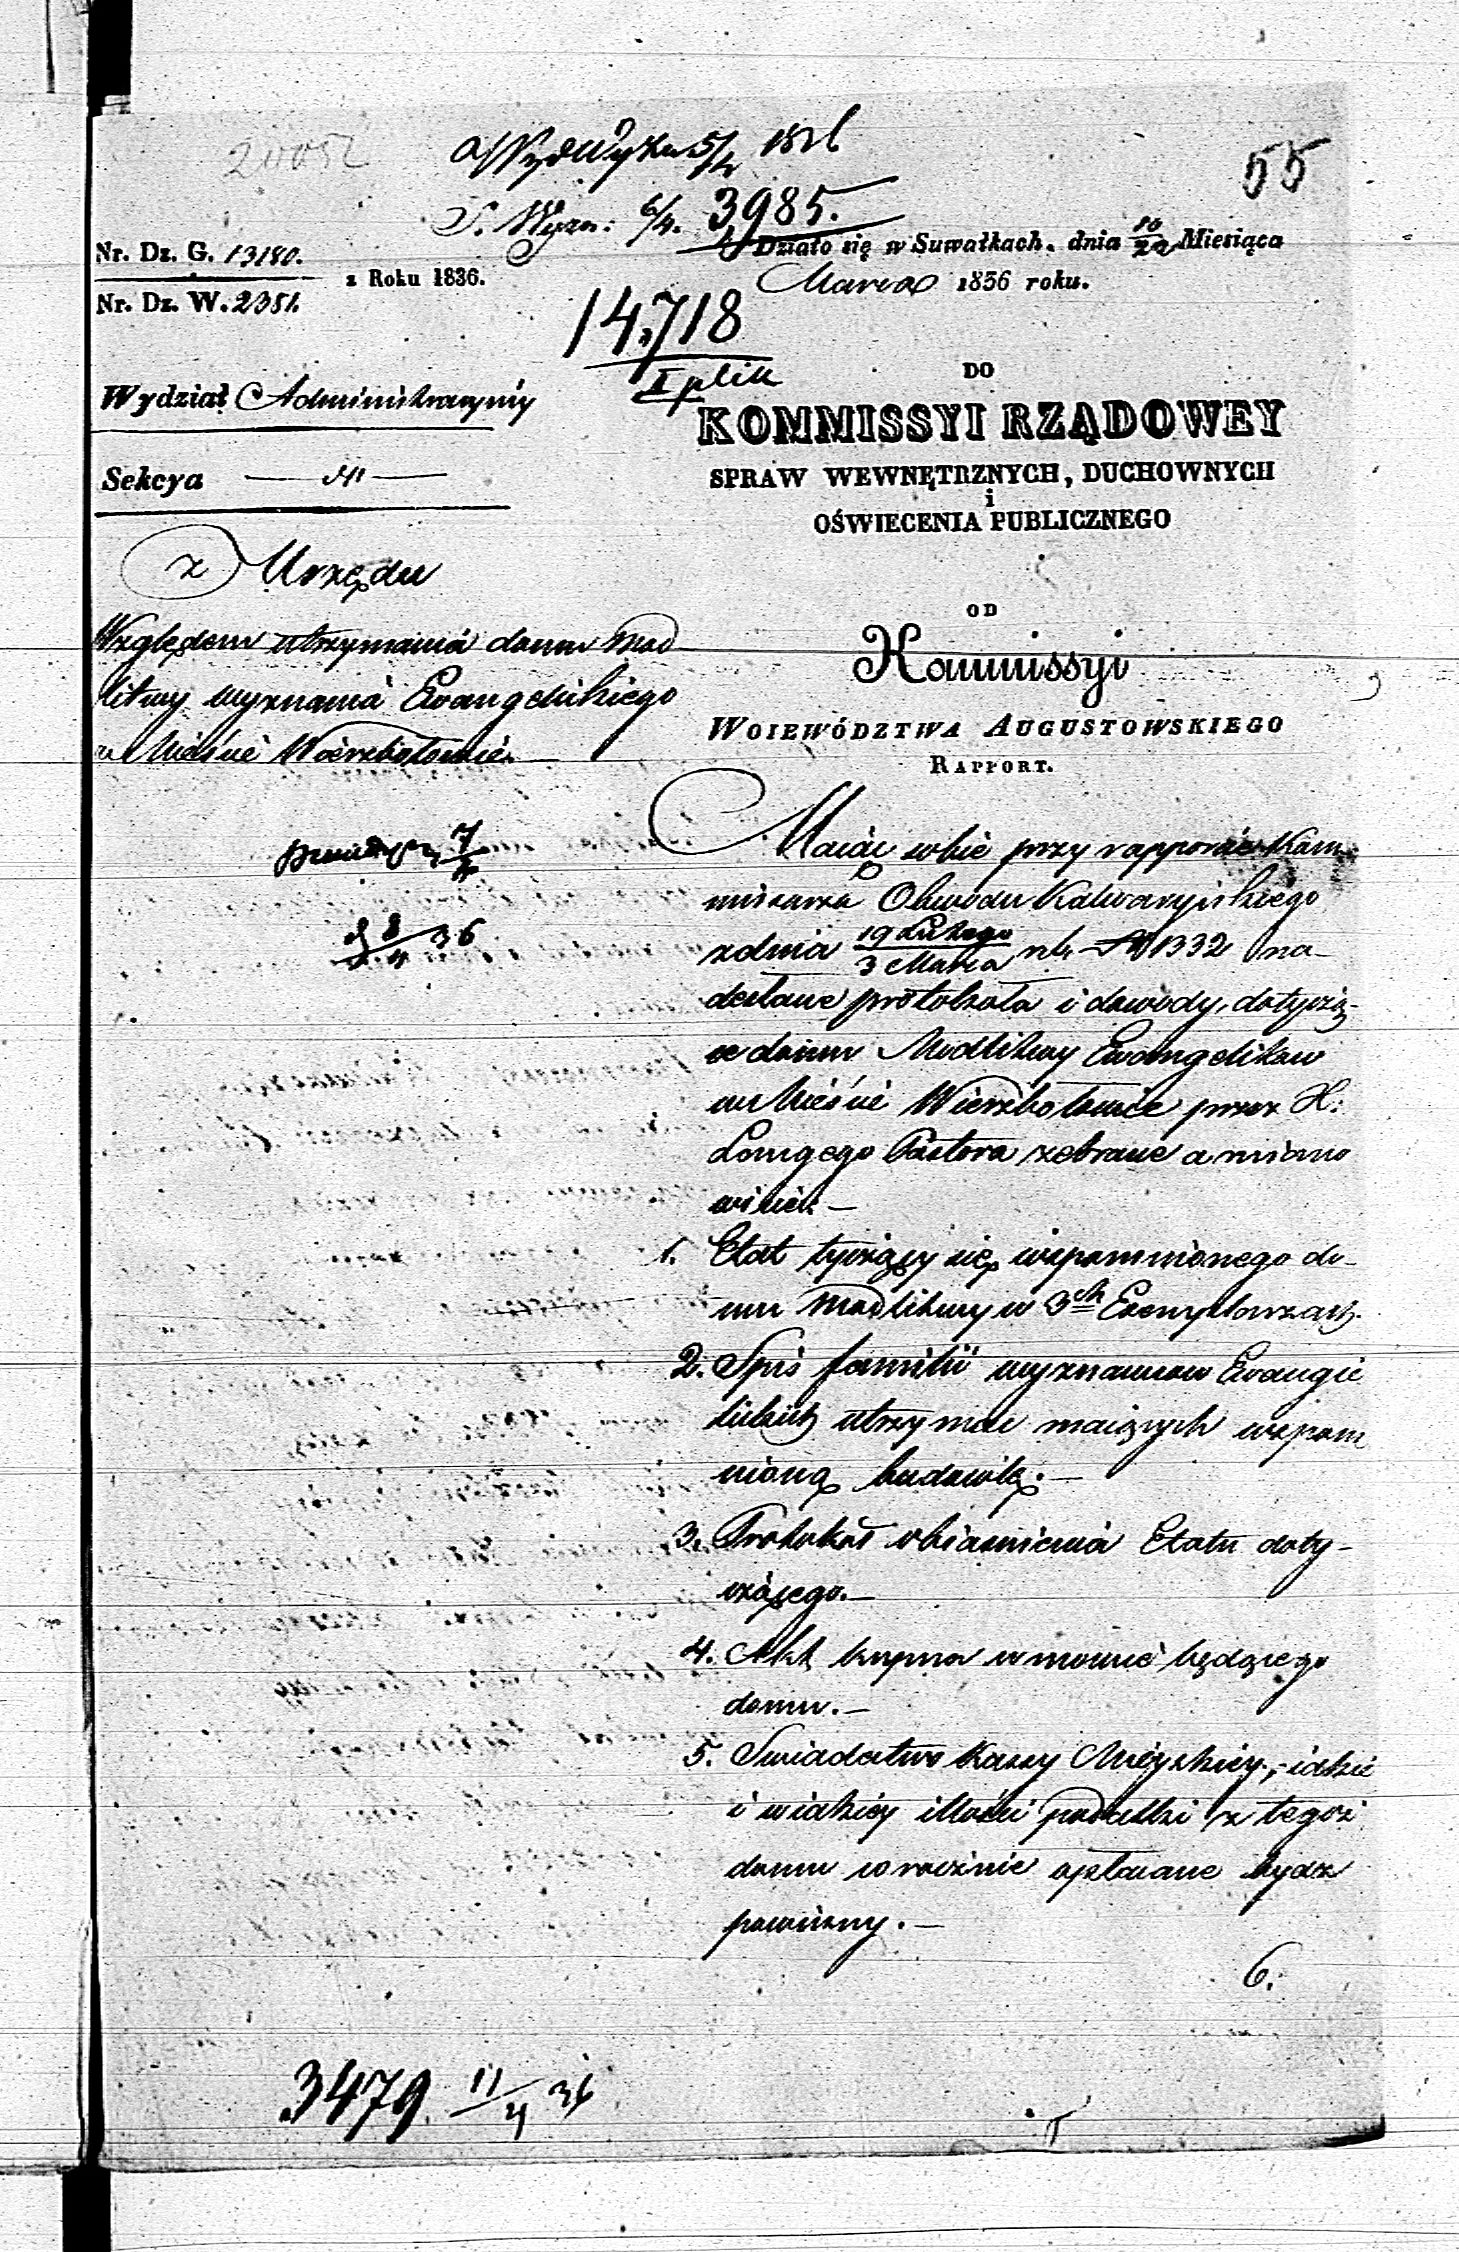 20052
55
3985.
Nr. Dz. G. 13180.
z Roku 1836.
Nr. Dz. W. 2351.
Działo się w Suwałkach. dnia 10/22 Miesiąca
Marca 1836 roku.
14,718
I plik
Wydział Administracyiny
Sekcya
DO
KOMMISSYI RZĄDOWEY
SPRAW WEWNĘTRZNYCH, DUCHOWNYCH
i
OŚWIECENIA PUBLICZNEGO
z Urzędu
Względem utrzymania domu Mod
litwy wyznania Ewangelickiego
w Mieście Wierzbołowie.
OD
Kommissyi
WOIEWÓDZTWA AUGUSTOWSKIEGO
RAPPORT.
7/4
8/4 36
Maiąc sobie przy rapporcie Kom
missarza Obwodu Kalwaryiskiego
z dnia 19 Lutego/3 Marca r.b. No 1332 na-
desłane protokoła i dowody, dotyczą-
ce domu Modlitwy Ewangelikow
w Mieście Wierzbołowie przez X.
Pastora zebrane a miano
wicie: —
1. Etat tyczący się wspomnionego do-
mu Modlitwy w 3ch Exemplarzach.
2. Spis familii wyznawcow Ewangie
lickich utrzymać maiących wspom
nioną budowlę. —
3. Protokół obiasnienia Etatu doty-
czącego. —
4. Akt kupna w mowie będącego
domu. —
5. Swiadectwo Kassy Mieyskiey, iakie
i w iakiey illości podatki z tegoż
domu corocznie opłacane bydź
powinny. —
6.
3479 11/4 36